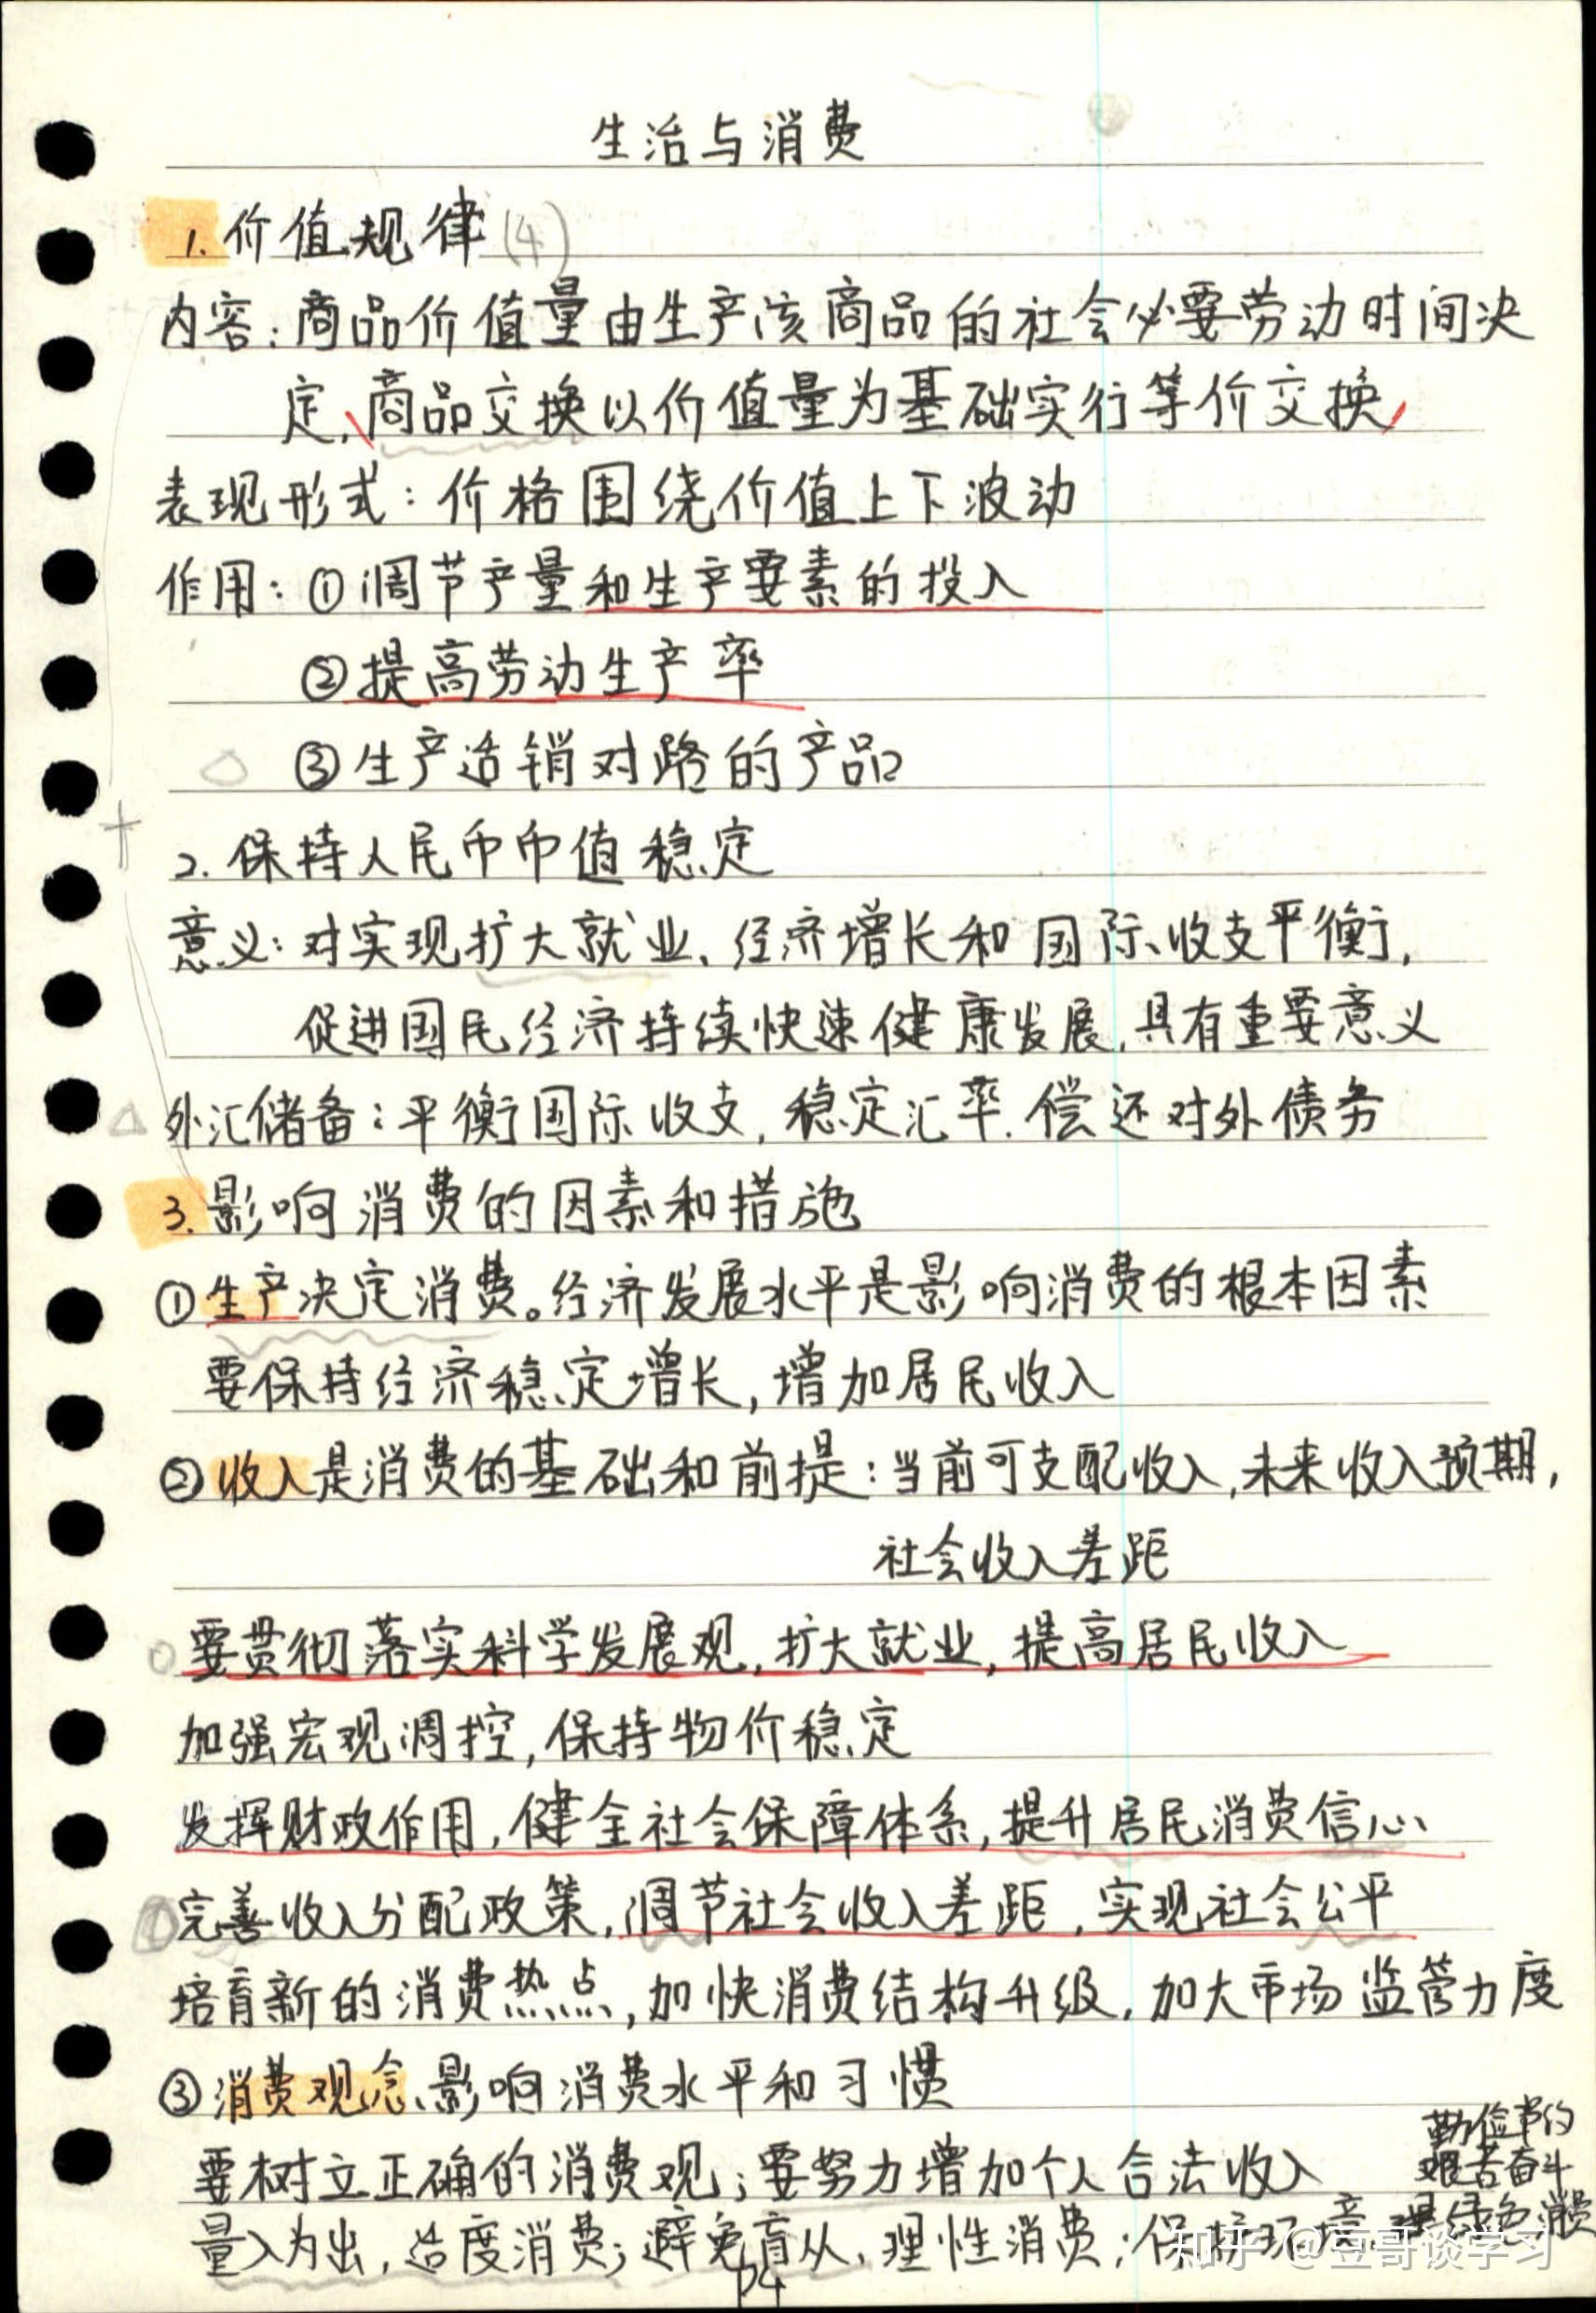 生治与消费
1. 价值规律 (4)
内容：商品价值量由生产该商品的社会必要劳动时间决
定、商品交换以价值量为基础实行等价交换
表现形式：价格围绕价值上下波动
作用：①调节产量和生产要素的投入
②提高劳动生产率
③生产适销对路的产品
2. 保持人民币币值稳定
意义：对实现扩大就业、经济增长和国际收支平衡，
促进国民经济持续快速健康发展，具有重要意义
外汇储备：平衡国际收支，稳定汇率．偿还对外债务
3. 影响消费的因素和措施
①生产决定消费。经济发展水平是影响消费的根本因素
要保持经济稳定增长，增加居民收入
②收入是消费的基础和前提：当前可支配收入，未来收入预期，
社会收入差距
要贯彻落实科学发展观，扩大就业，提高居民收入
加强宏观调控，保持物价稳定
发挥财政作用，健全社会保障体系，提升居民消费信心
完善收入分配政策，调节社会收入差距，实现社会公平
培育新的消费热点，加快消费结构升级，加大市场监管力度
③消费观念影响消费水平和习惯
要树立正确的消费观；要努力增加个人合法收入
勤俭节约
艰苦奋斗
量入为出，适度消费；避免盲从，理性消费；保护环境 绿色消费
P4
知乎 @豆哥谈学习